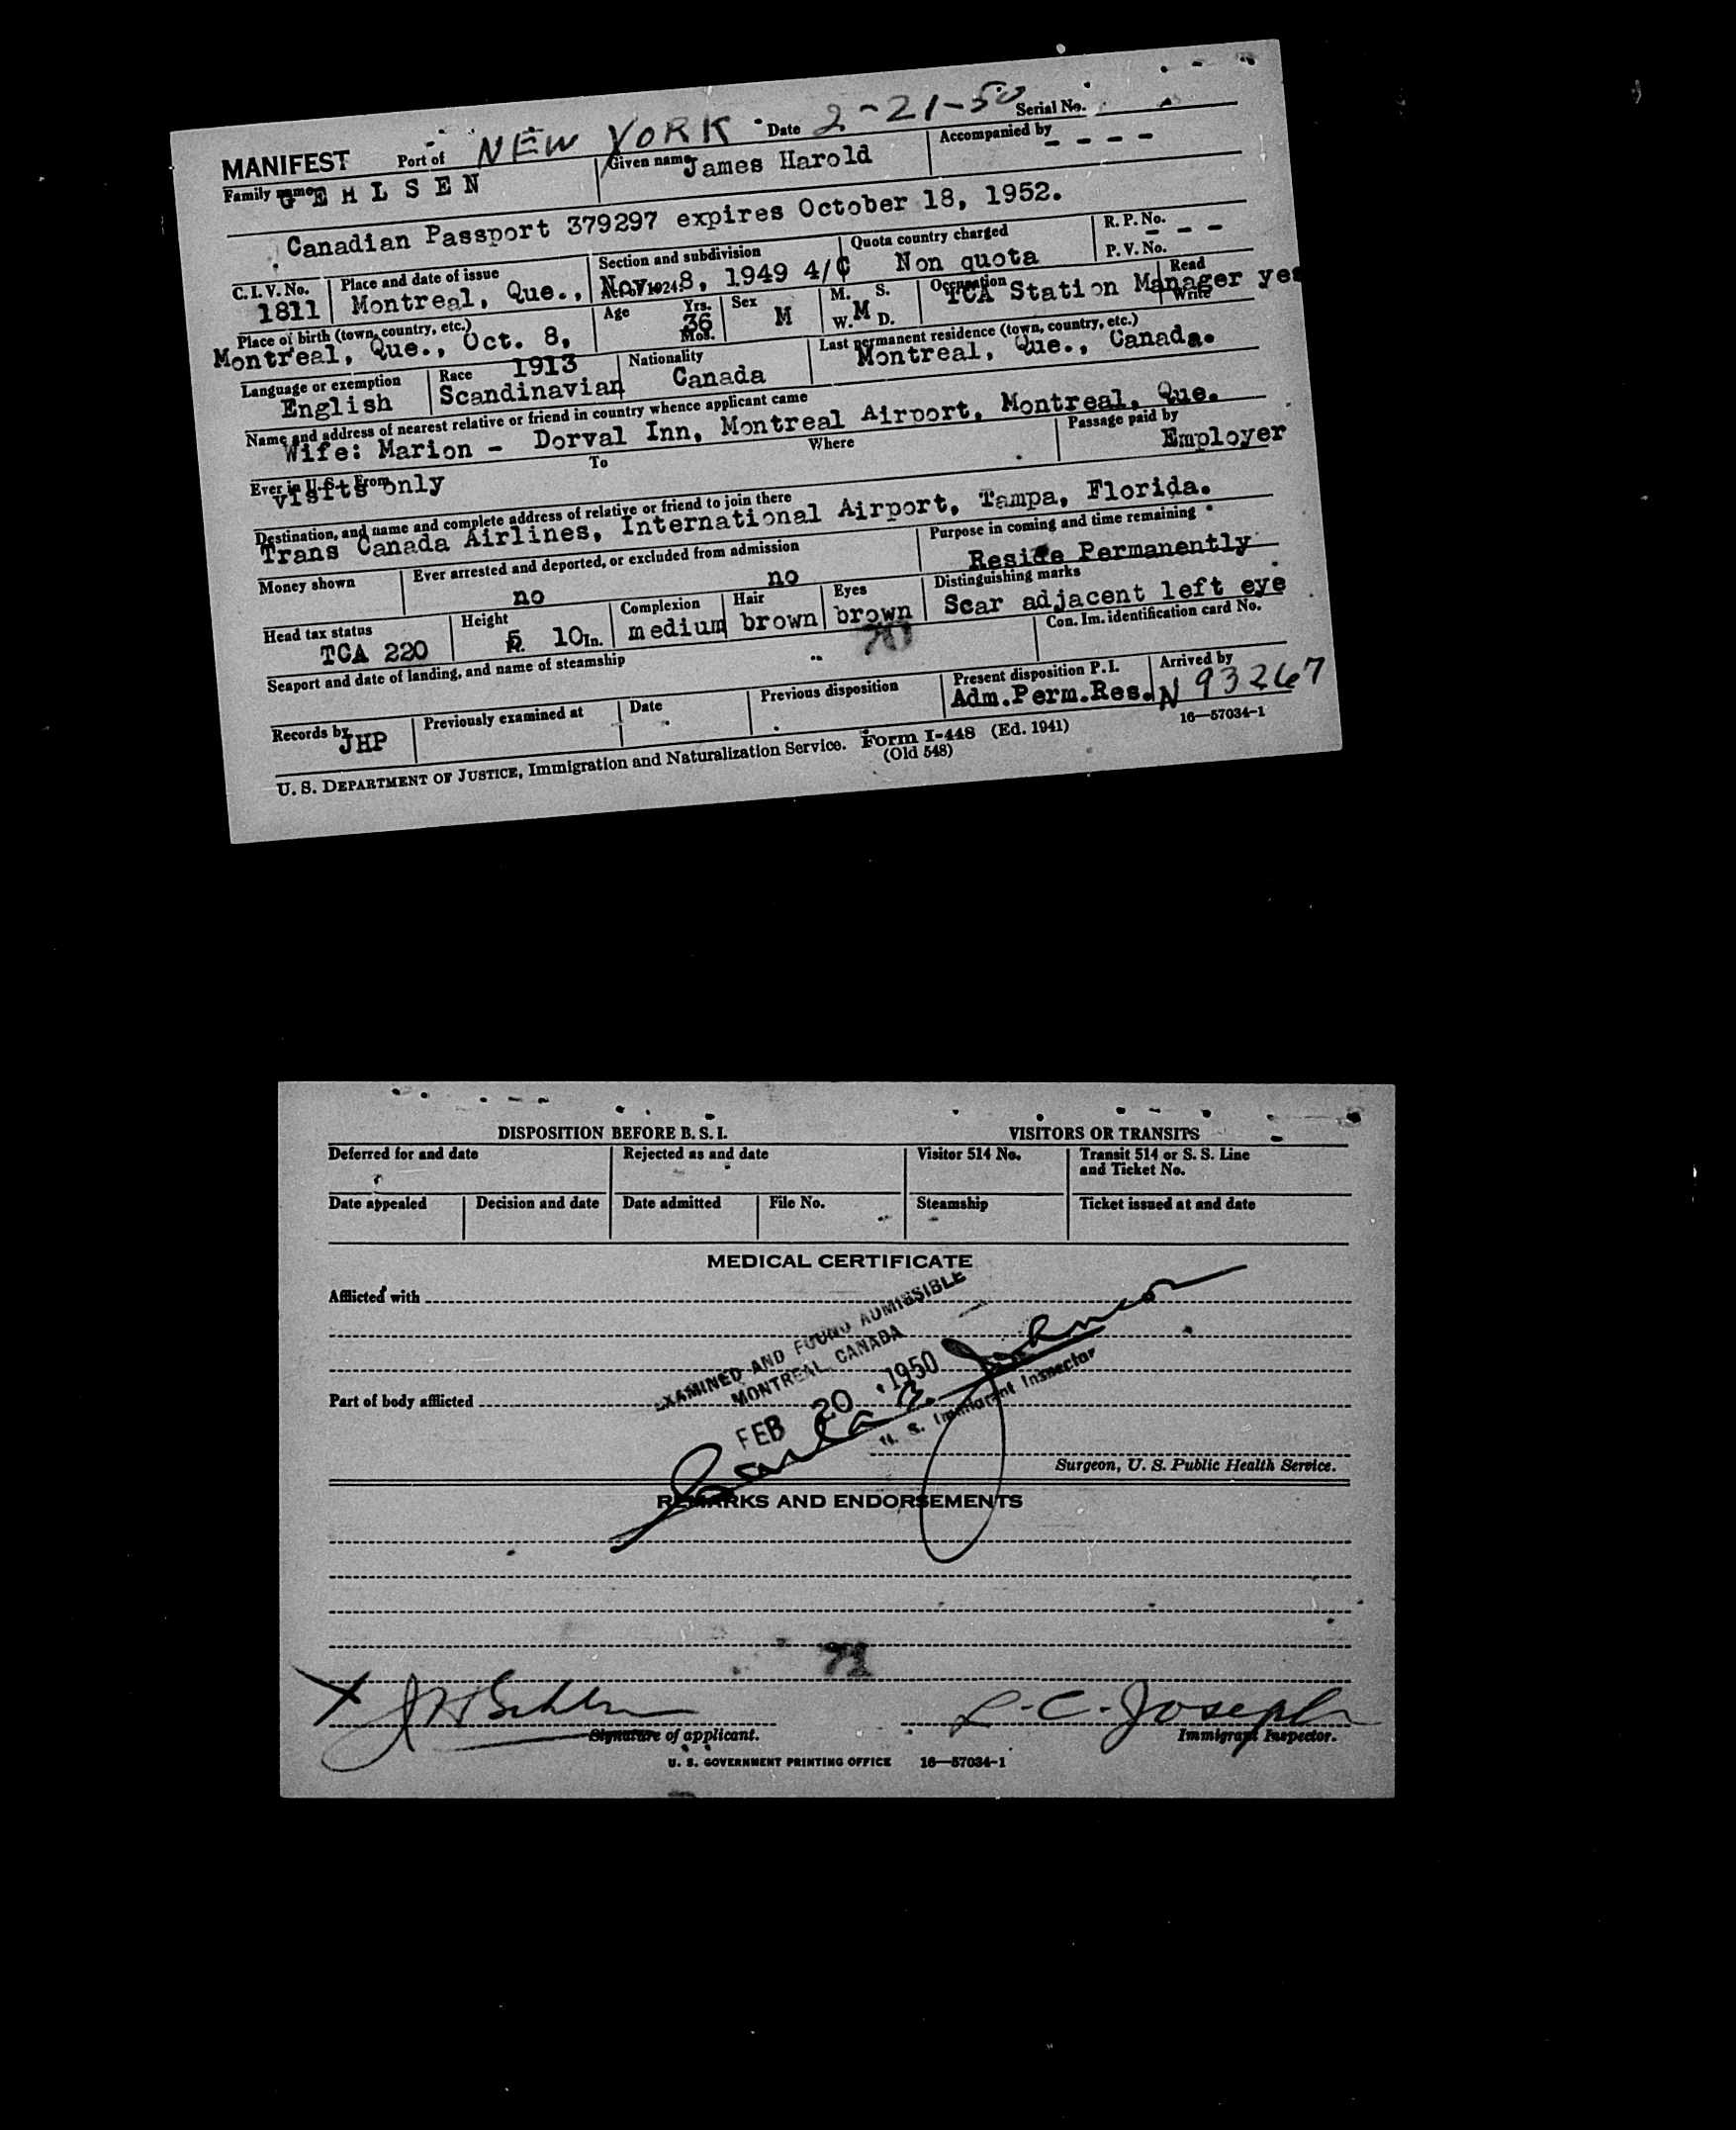 MANIFEST Port of NEW YORK Date 2-21-50 Serial No.
Family name GEHLSEN Given name James Harold Accompanied by - - - -
Canadian Passport 379297 expires October 18, 1952.
C. I. V. No. 1811 Place and date of issue Montreal, Que., Section and subdivision Nov. 8, 1949 4/C Quota country charged Non quota R. P. No. - - - P. V. No.
Place of birth (town, country, etc.) Montreal, Que., Oct. 8, 1913 Age Yrs. 36 Mos. Sex M M. S. W. D. M Occupation TCA Station Manager Read Write yes
Language or exemption English Race Scandinavian Nationality Canada Last permanent residence (town, country, etc.) Montreal, Que., Canada.
Name and address of nearest relative or friend in country whence applicant came
Wife: Marion - Dorval Inn, Montreal Airport, Montreal, Que.
Ever in U. S. From visits only To Where Passage paid by Employer
Destination, and name and complete address of relative or friend to join there
Trans Canada Airlines, International Airport, Tampa, Florida.
Money shown Ever arrested and deported, or excluded from admission no no Purpose in coming and time remaining Reside Permanently
Head tax status TCA 220 Height 5 Ft. 10 In. Complexion medium Hair brown Eyes brown Distinguishing marks Scar adjacent left eye
Seaport and date of landing, and name of steamship Con. Im. identification card No.
Records by JHP Previously examined at Date Previous disposition Present disposition P. I. Adm.Perm.Res. Arrived by N 93267
U. S. DEPARTMENT OF JUSTICE, Immigration and Naturalization Service. Form I-448 (Ed. 1941) 16—57034-1
(Old 548)
DISPOSITION BEFORE B. S. I. VISITORS OR TRANSITS
Deferred for and date Rejected as and date Visitor 514 No. Transit 514 or S. S. Line
and Ticket No.
Date appealed Decision and date Date admitted File No. Steamship Ticket issued at and date
MEDICAL CERTIFICATE
Afflicted with
EXAMINED AND FOUND ADMISSIBLE
MONTREAL, CANADA
FEB 20 1950
U. S. Immigrant Inspector
Part of body afflicted
Surgeon, U. S. Public Health Service.
REMARKS AND ENDORSEMENTS
X R.C. Joseph
Signature of applicant. Immigrant Inspector.
U. S. GOVERNMENT PRINTING OFFICE 16—57034-1